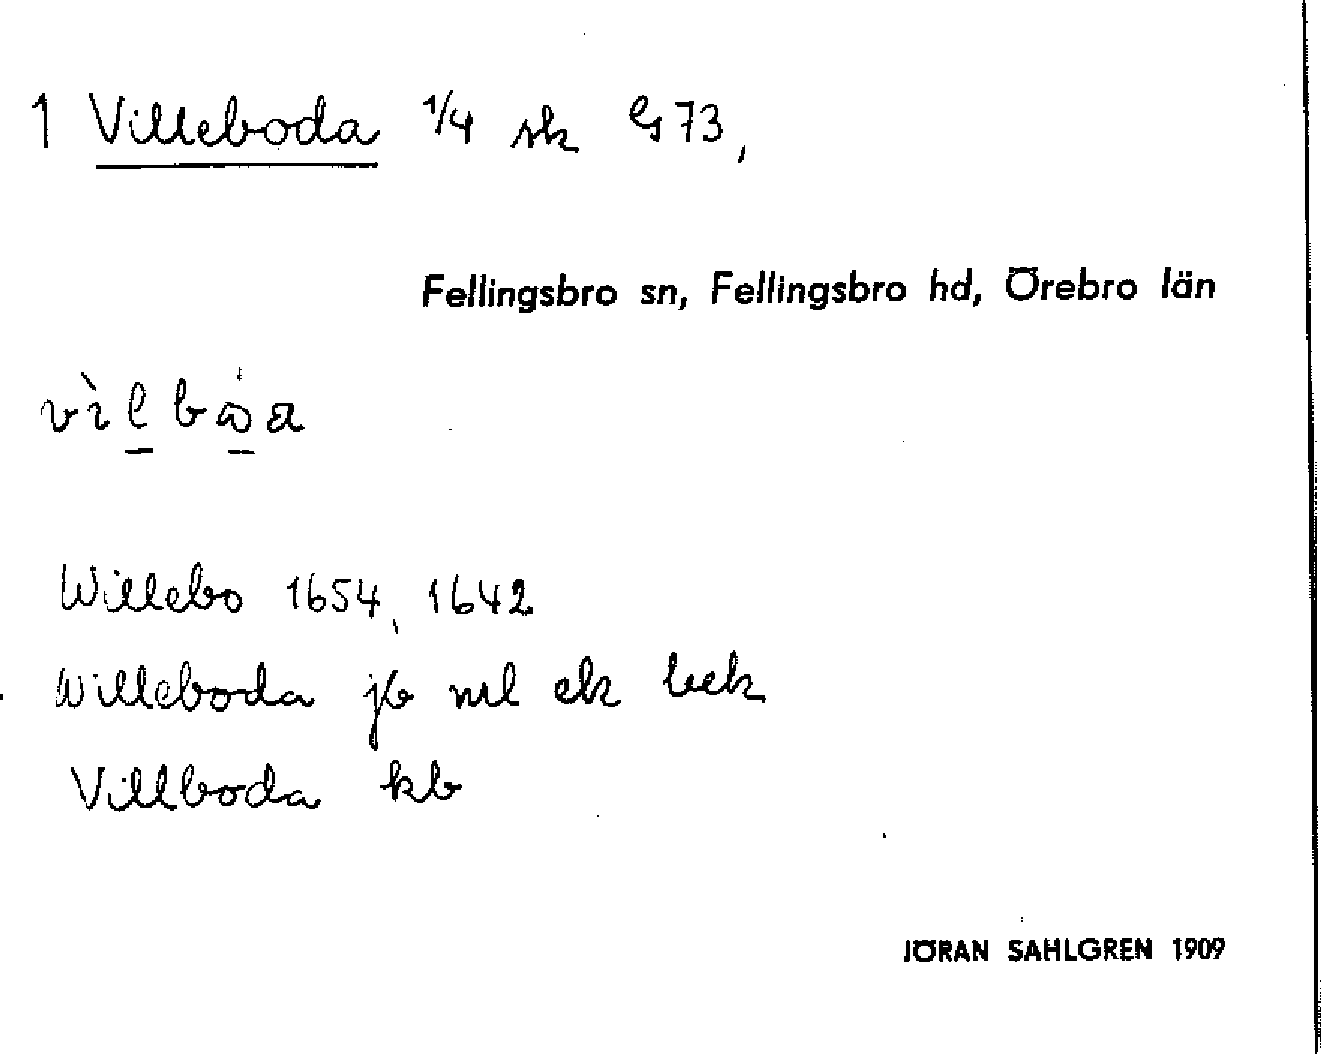 1 Villeboda 1/4 sk G 73,
Fellingsbro sn, Fellingsbro hd, Örebro län
vìlbω̇a
Willebo 1654, 1642
Willeboda jb ml ek
Villboda kb
JÖRAN SAHLGREN 1909